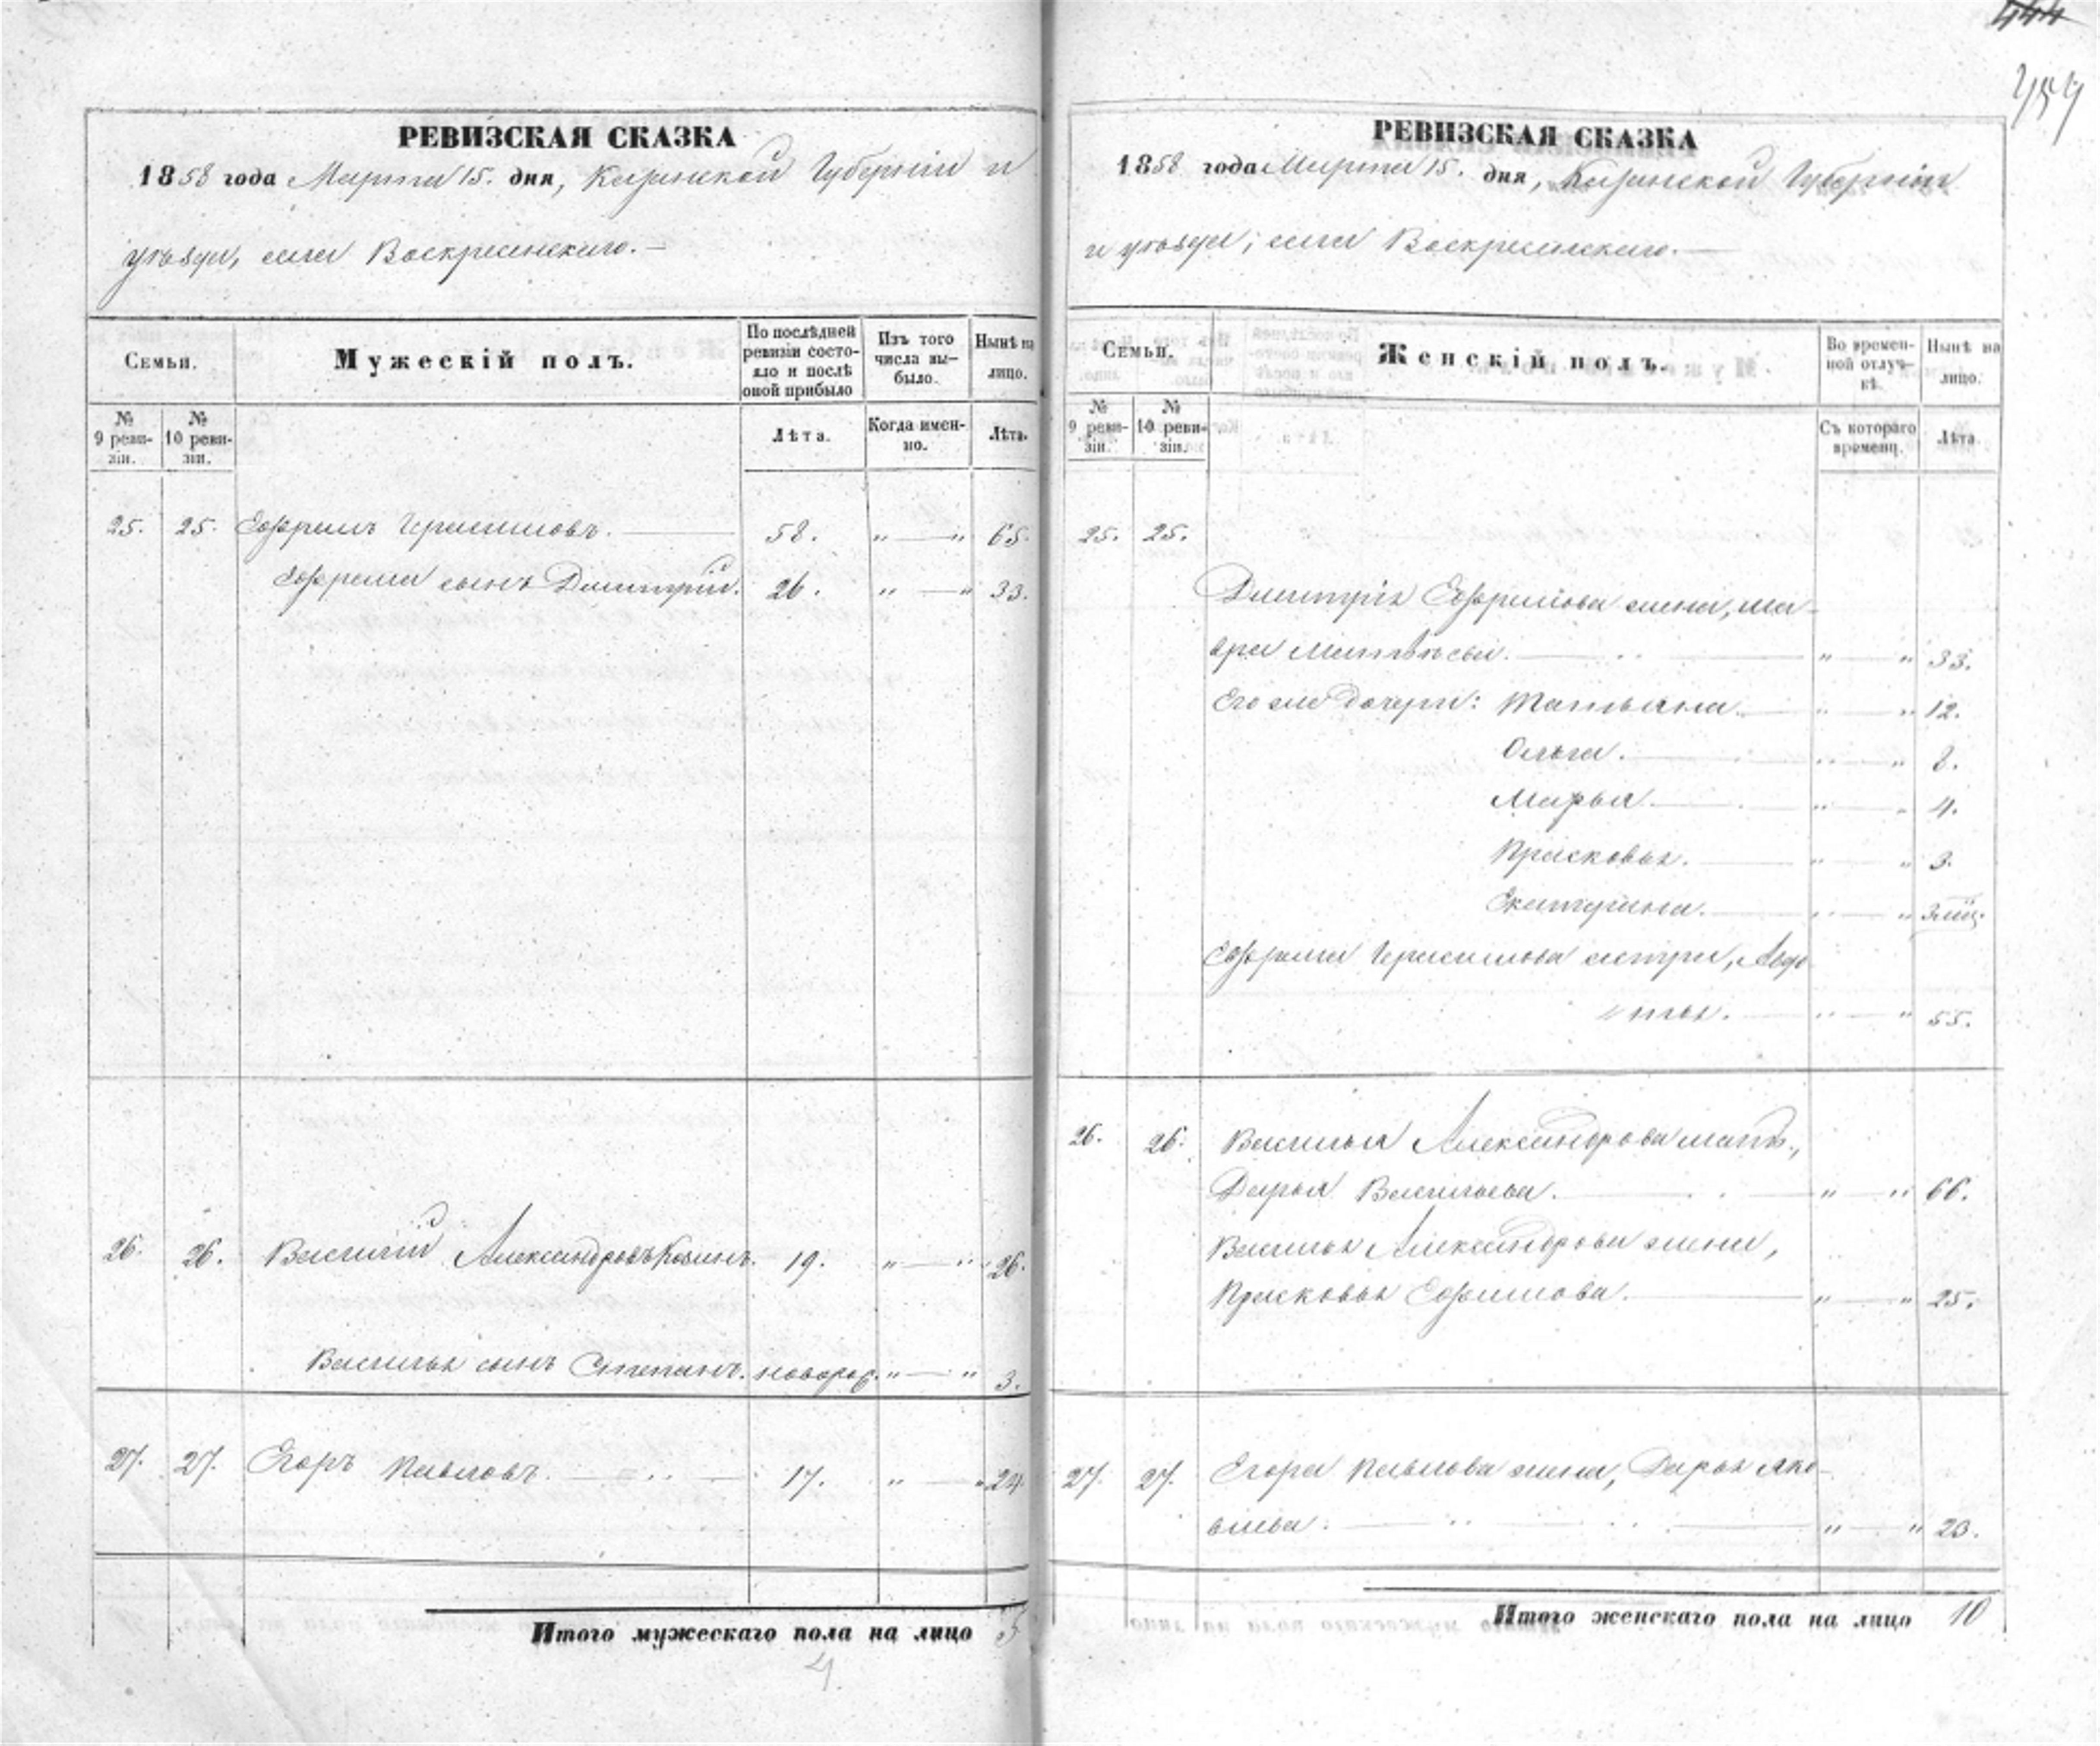 444
457
РЕВИЗСКАЯ СКАЗКА
1858 года Марта 15. дня, Казанской Губерніи и
уѣзда, села Воскресенскаго.—
Семьи.
Мужескій полъ.
По послѣдней ревизіи состояло и послѣ оной прибыло
Изъ того числа выбыло.
Нынѣ на лицо.
№ 9 ревизіи.
№ 10 ревизіи.
Лѣта.
Когда именно.
Лѣта.
25. 25. Ефремъ Герасимовъ. 58. „—„ 65.
Ефрема сынъ Дмитрій. 26. „—„ 33.
26. 26. Василій Александровъ Козинъ. 19. „—„ 26.
Василья сынъ Степанъ. новорож. „—„ 3.
27. 27. Егоръ Павловъ. 17. „—„ 24.
Итого мужескаго пола на лицо 5
4
РЕВИЗСКАЯ СКАЗКА
1858 года Марта 15. дня, Казанской Губерніи
и уѣзда, села Воскресенскаго.—
Семьи.
Женскій полъ.
Во временной отлучкѣ.
Нынѣ на лицо.
№ 9 ревизіи.
№ 10 ревизіи.
Съ котораго времени.
Лѣта.
25. 25.
Дмитрія Ефремова жена, Ма-
вра Матвѣева. „—„ 33.
Его же дочери: Татьяна. „—„ 12.
Ольга. „—„ 8.
Марья. „—„ 4.
Прасковья. „—„ 3.
Екатерина. „—„ 3 мѣс.
Ефрема Герасимова сестра, Авдо
тья. „—„ 55.
26. 26. Василья Александрова мать,
Дарья Васильева. „—„ 66.
Василья Александрова жена,
Прасковья Ефимова. „—„ 25.
27. 27. Егора Павлова жена, Дарья Яко-
влева. „—„ 23.
Итого женскаго пола на лицо 10